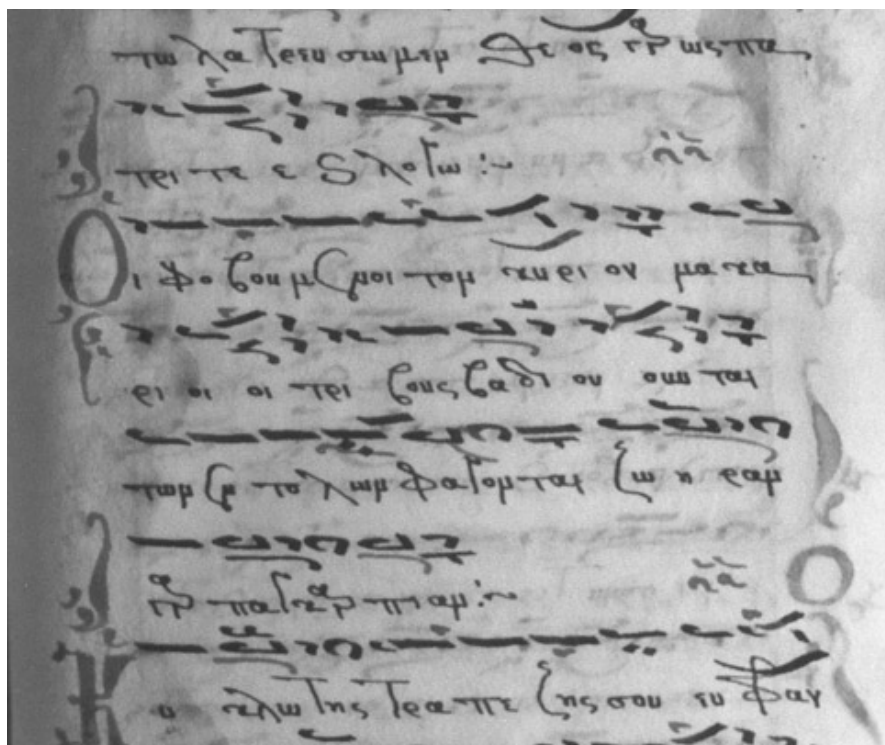 τω λα τρευ σωμεν θε ος γαρ ως πα
τρι τε ε ϛ λο γω :~
Οι φο βου μενοι τον κυρι ον μα κα
ρι οι οι τρι βους βα δι ου ουν ται
των εν το λων φα γον ται ζω η ραν
γαρ παγ καρ πιαν :~
Κυ κλω της τρα πε ζης σου ευ φραν